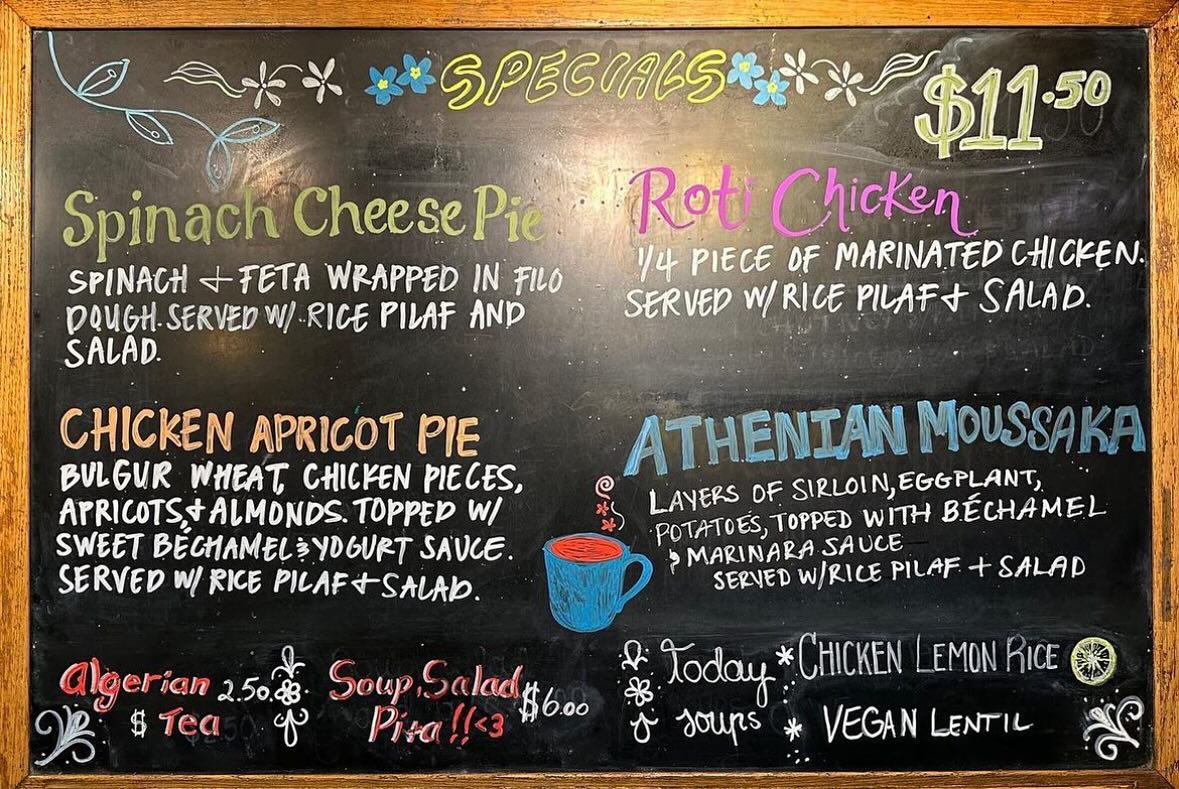 SPECIALS
$11.50
Spinach Cheese Pie
SPINACH + FETA WRAPPED IN FILO
DOUGH. SERVED W/ RICE PILAF AND
SALAD.
Roti Chicken
1/4 PIECE OF MARINATED CHICKEN.
SERVED W/ RICE PILAF + SALAD.
CHICKEN APRICOT PIE
BULGUR WHEAT, CHICKEN PIECES,
APRICOTS, + ALMONDS. TOPPED W/
SWEET BÉCHAMEL & YOGURT SAUCE.
SERVED W/ RICE PILAF + SALAD.
ATHENIAN MOUSSAKA
LAYERS OF SIRLOIN, EGGPLANT,
POTATOES, TOPPED WITH BÉCHAMEL
& MARINARA SAUCE
SERVED W/ RICE PILAF + SALAD
Algerian 2.50
$ Tea
Soup, Salad $6.00
Pita!! <3
Today
soups
* CHICKEN LEMON RICE
* VEGAN LENTIL